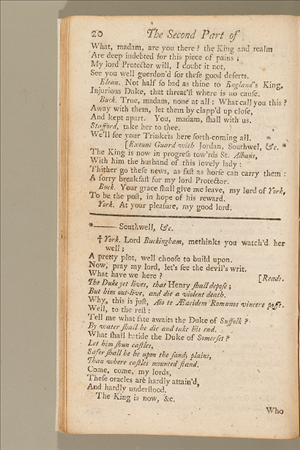 20 The Second Part of
What, madam, are you there? the King and realm
Are deep indebted for this piece of pains;
My lord Protector will, I doubt it not,
See you well guerdon'd for these good deserts.
Elean. Not half so bad as thine to England's King,
Injurious Duke, that threat'st where is no cause.
Buck. True, madam, none at all: What call you this?
Away with them, let them be clapp'd up close,
And kept apart. You, madam, shall with us.
Stafford, take her to thee.
We'll see your Trinkets here forth-coming all.
[Exeunt Guard with Jordan, Southwel, &c. *
The King is now in progress tow'rds St. Albans,
With him the husband of this lovely lady:
Thither go these news, as fast as horse can carry them:
A sorry breakfast for my lord Protector.
Buck. Your grace shall give me leave, my lord of York,
To be the post, in hope of his reward.
York. At your pleasure, my good lord.
* —— Southwell, &c.
† York. Lord Buckingham, methinks you watch'd her
well;
A pretty plot, well chose to build upon.
Now, pray my lord, let's see the devil's writ.
What have we here? [Reads.
The Duke yet lives, that Henry shall depose;
But him out-live, and die a violent death.
Why, this is just, Aio te Æacidem Romanos vincere posse.
Well, to the rest:
Tell me what fate awaits the Duke of Suffolk?
By water shall he die and take his end.
What shall betide the Duke of Somerset?
Let him shun castles,
Safer shall he be upon the sandy plains,
Than where castles mounted stand.
Come, come, my lords,
These oracles are hardly attain'd,
And hardly understood.
The King is now, &c.
Who